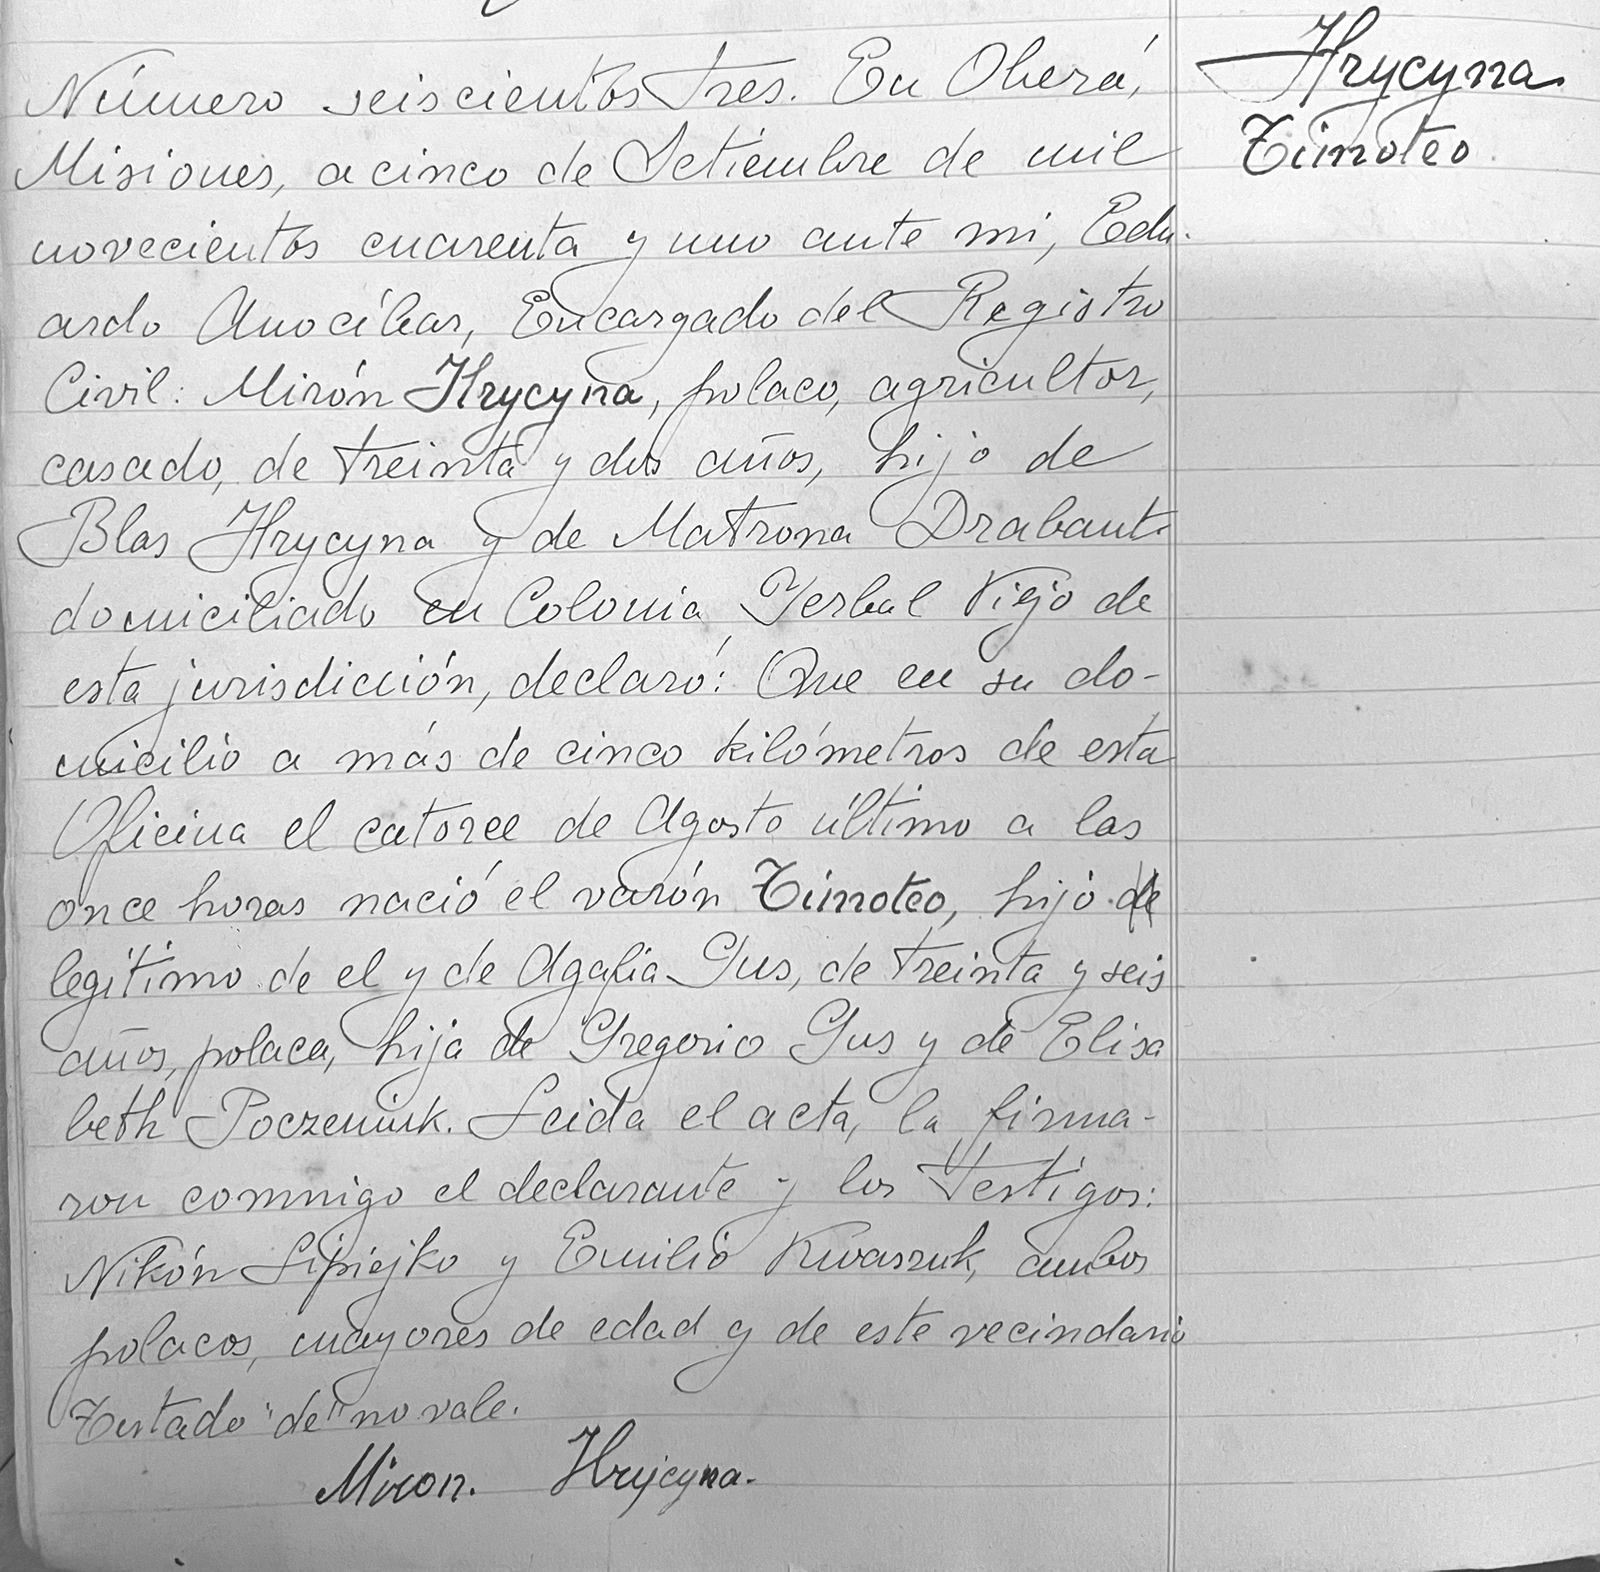 Hrycyna
Timoteo
Número seiscientos tres. En Oberá,
Misiones, a cinco de Setiembre de mil
novecientos cuarenta y uno ante mi, Edu-
ardo Anocíbar, Encargado del Registro
Civil: Mirón Hrycyna, polaco, agricultor,
casado, de treinta y dos años, hijo de
Blas Hrycyna y de Matrona Drabant.
domiciliado en Colonia Yerbal Viejo de
esta jurisdicción, declaró: Que en su do-
micilio a más de cinco kilómetros de esta
Oficina el catorce de Agosto último a las
once horas nació el varón Timoteo, hijo de
legítimo de el y de Agafia Gus, de treinta y seis
años, polaca, hija de Gregorio Gus y de Elisa
beth Poczeniuk. Leida el acta, la firma-
ron conmigo el declarante y los testigos:
Nikón Lipiejko y Emilio Kwaszuk, ambos
polacos, mayores de edad y de este vecindario
Testado "de" no vale.
Miron. Hrycyna.